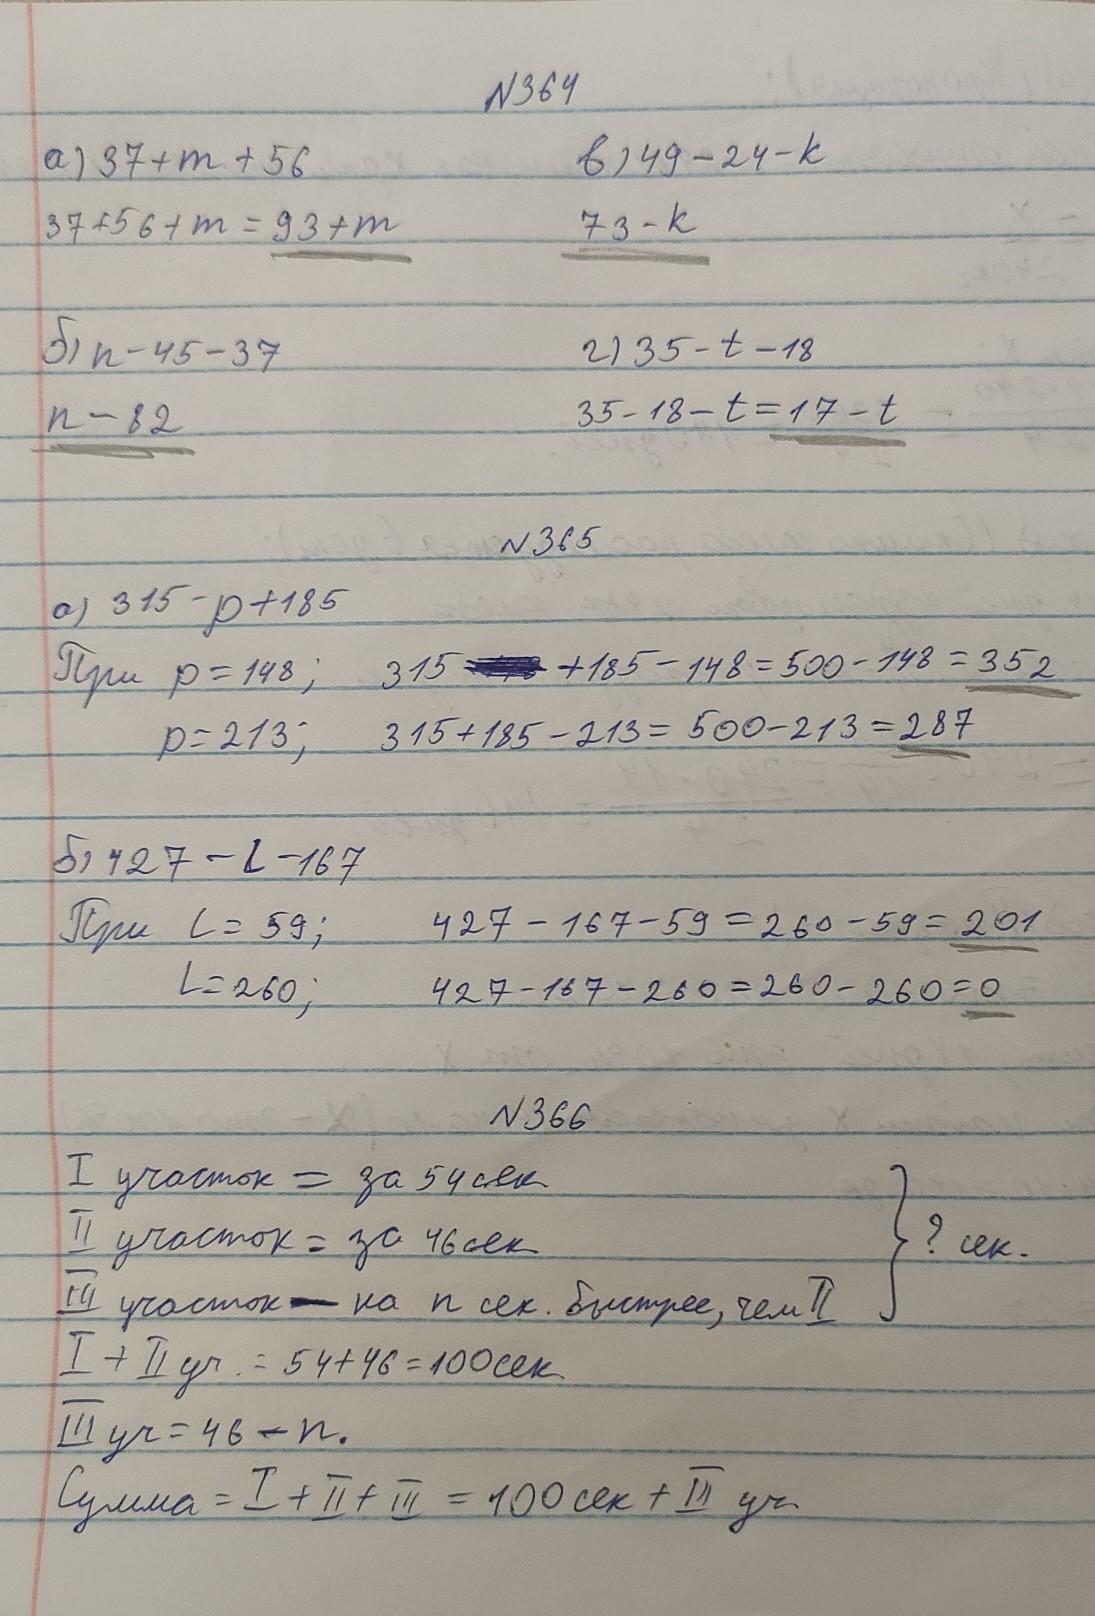 N364
а) 37+m+56
37+56+m = 93+m
в) 49-24-k
73-k
б) n-45-37
n-82
г) 35-t-18
35-18-t=17-t
N365
а) 315-p+185
При p=148; 315 +185-148=500-148=352
p=213; 315+185-213=500-213=287
б) 427-L-167
При L=59; 427-167-59=260-59=201
L=260; 427-167-260=260-260=0
N366
I участок = за 54 сек
II участок = за 46 сек
III участок - на n сек. быстрее, чем II
? сек.
I + II уч. = 54+46=100сек
III уч=46-n.
Сумма = I + II + III = 100 сек + III уч